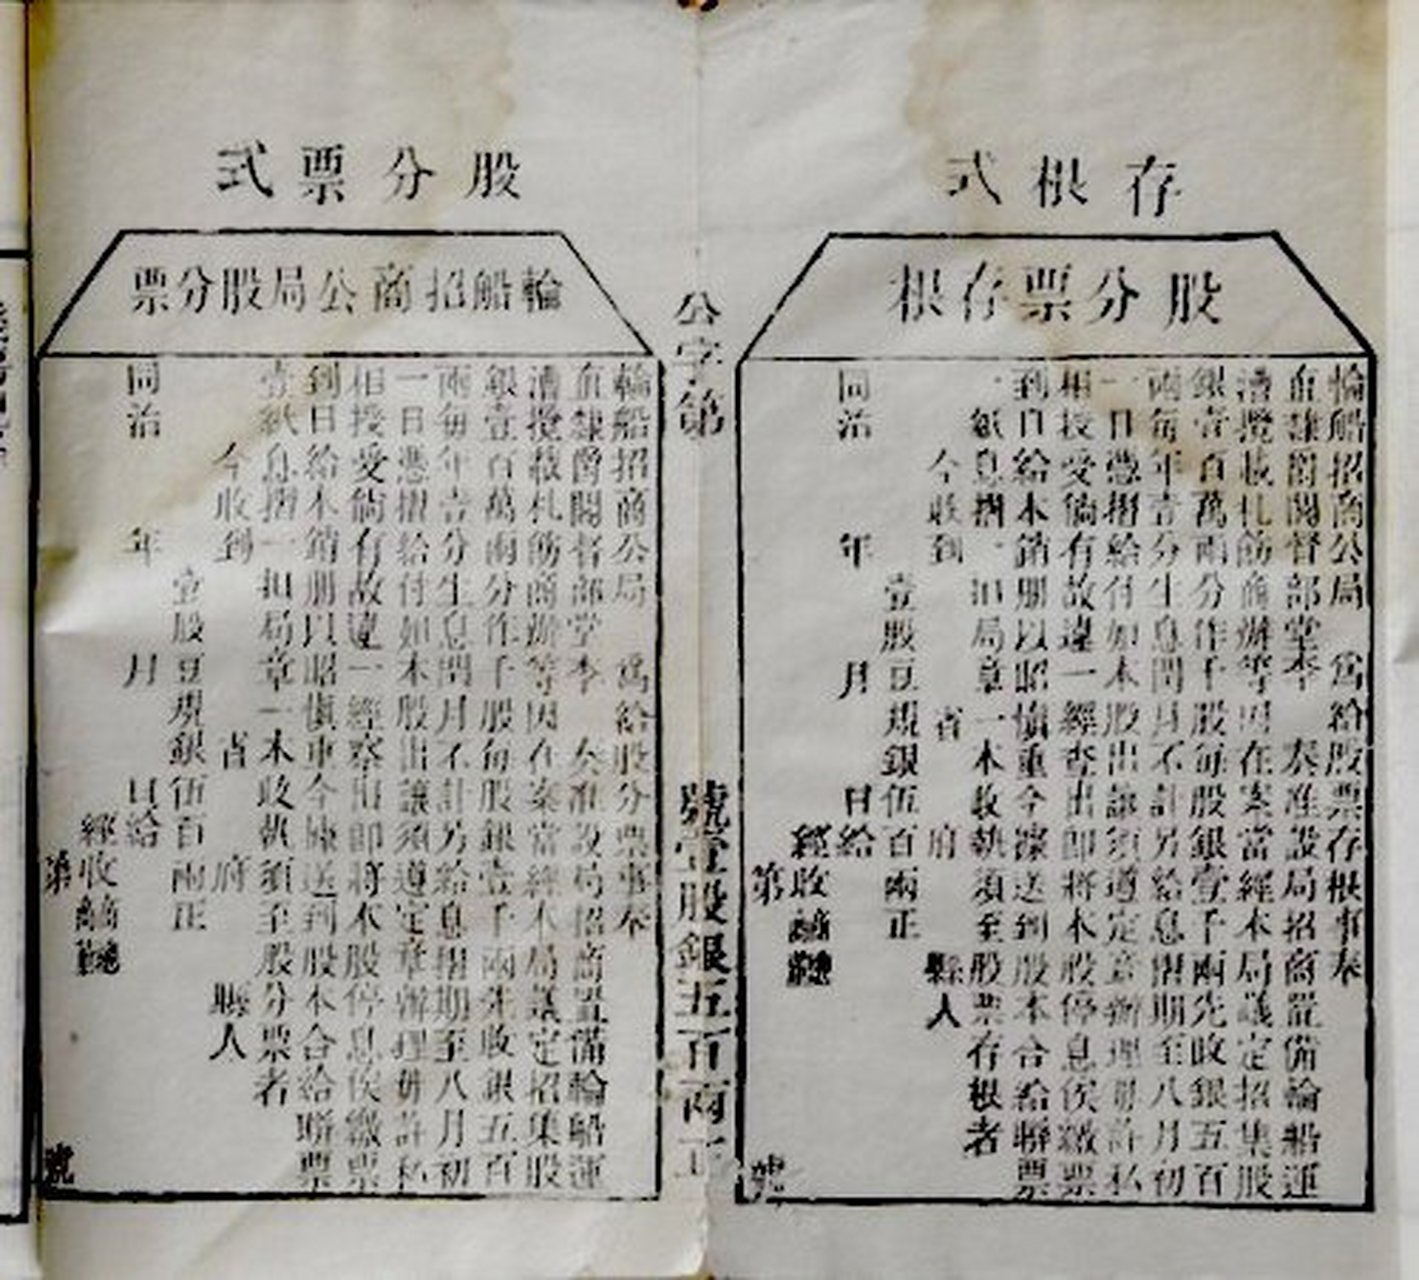 存根式
股分票存根
輪船招商公局 爲給股票存根事奉
直隸爵閣督部堂李 奏准設局招商置備輪船運
漕攬載札飭商辦等因在案當經本局議定招集股
銀壹百萬兩分作千股每股銀壹千兩先收銀五百
兩每年壹分生息閏月不計另給息摺期至八月初
一日憑摺給付如本股出讓須遵定章辦理毋許私
相授受倘有故違一經查出卽將本股停息俟繳票
到日給本銷册以昭愼重今據送到股本合給聯票
一紙息摺一扣局章一本收執須至股票存根者
今收到 省 府 縣人
壹股豆規銀伍百兩正
同治 年 月 日給
經收 總
第 號
公字第 號壹股銀五百兩正
股分票式
輪船招商公局股分票
輪船招商公局 爲給股分票事奉
直隸爵閣督部堂李 奏准設局招商置備輪船運
漕攬載札飭商辦等因在案當經本局議定招集股
銀壹百萬兩分作千股每股銀壹千兩先收銀五百
兩每年壹分生息閏月不計另給息摺期至八月初
一日憑摺給付如本股出讓須遵定章辦理毋許私
相授受倘有故違一經察出卽將本股停息俟繳票
到日給本銷册以昭愼重今據送到股本合給聯票
壹紙息摺一扣局章一本收執須至股分票者
今收到 省 府 縣人
壹股豆規銀伍百兩正
同治 年 月 日給
經收 總
第 號